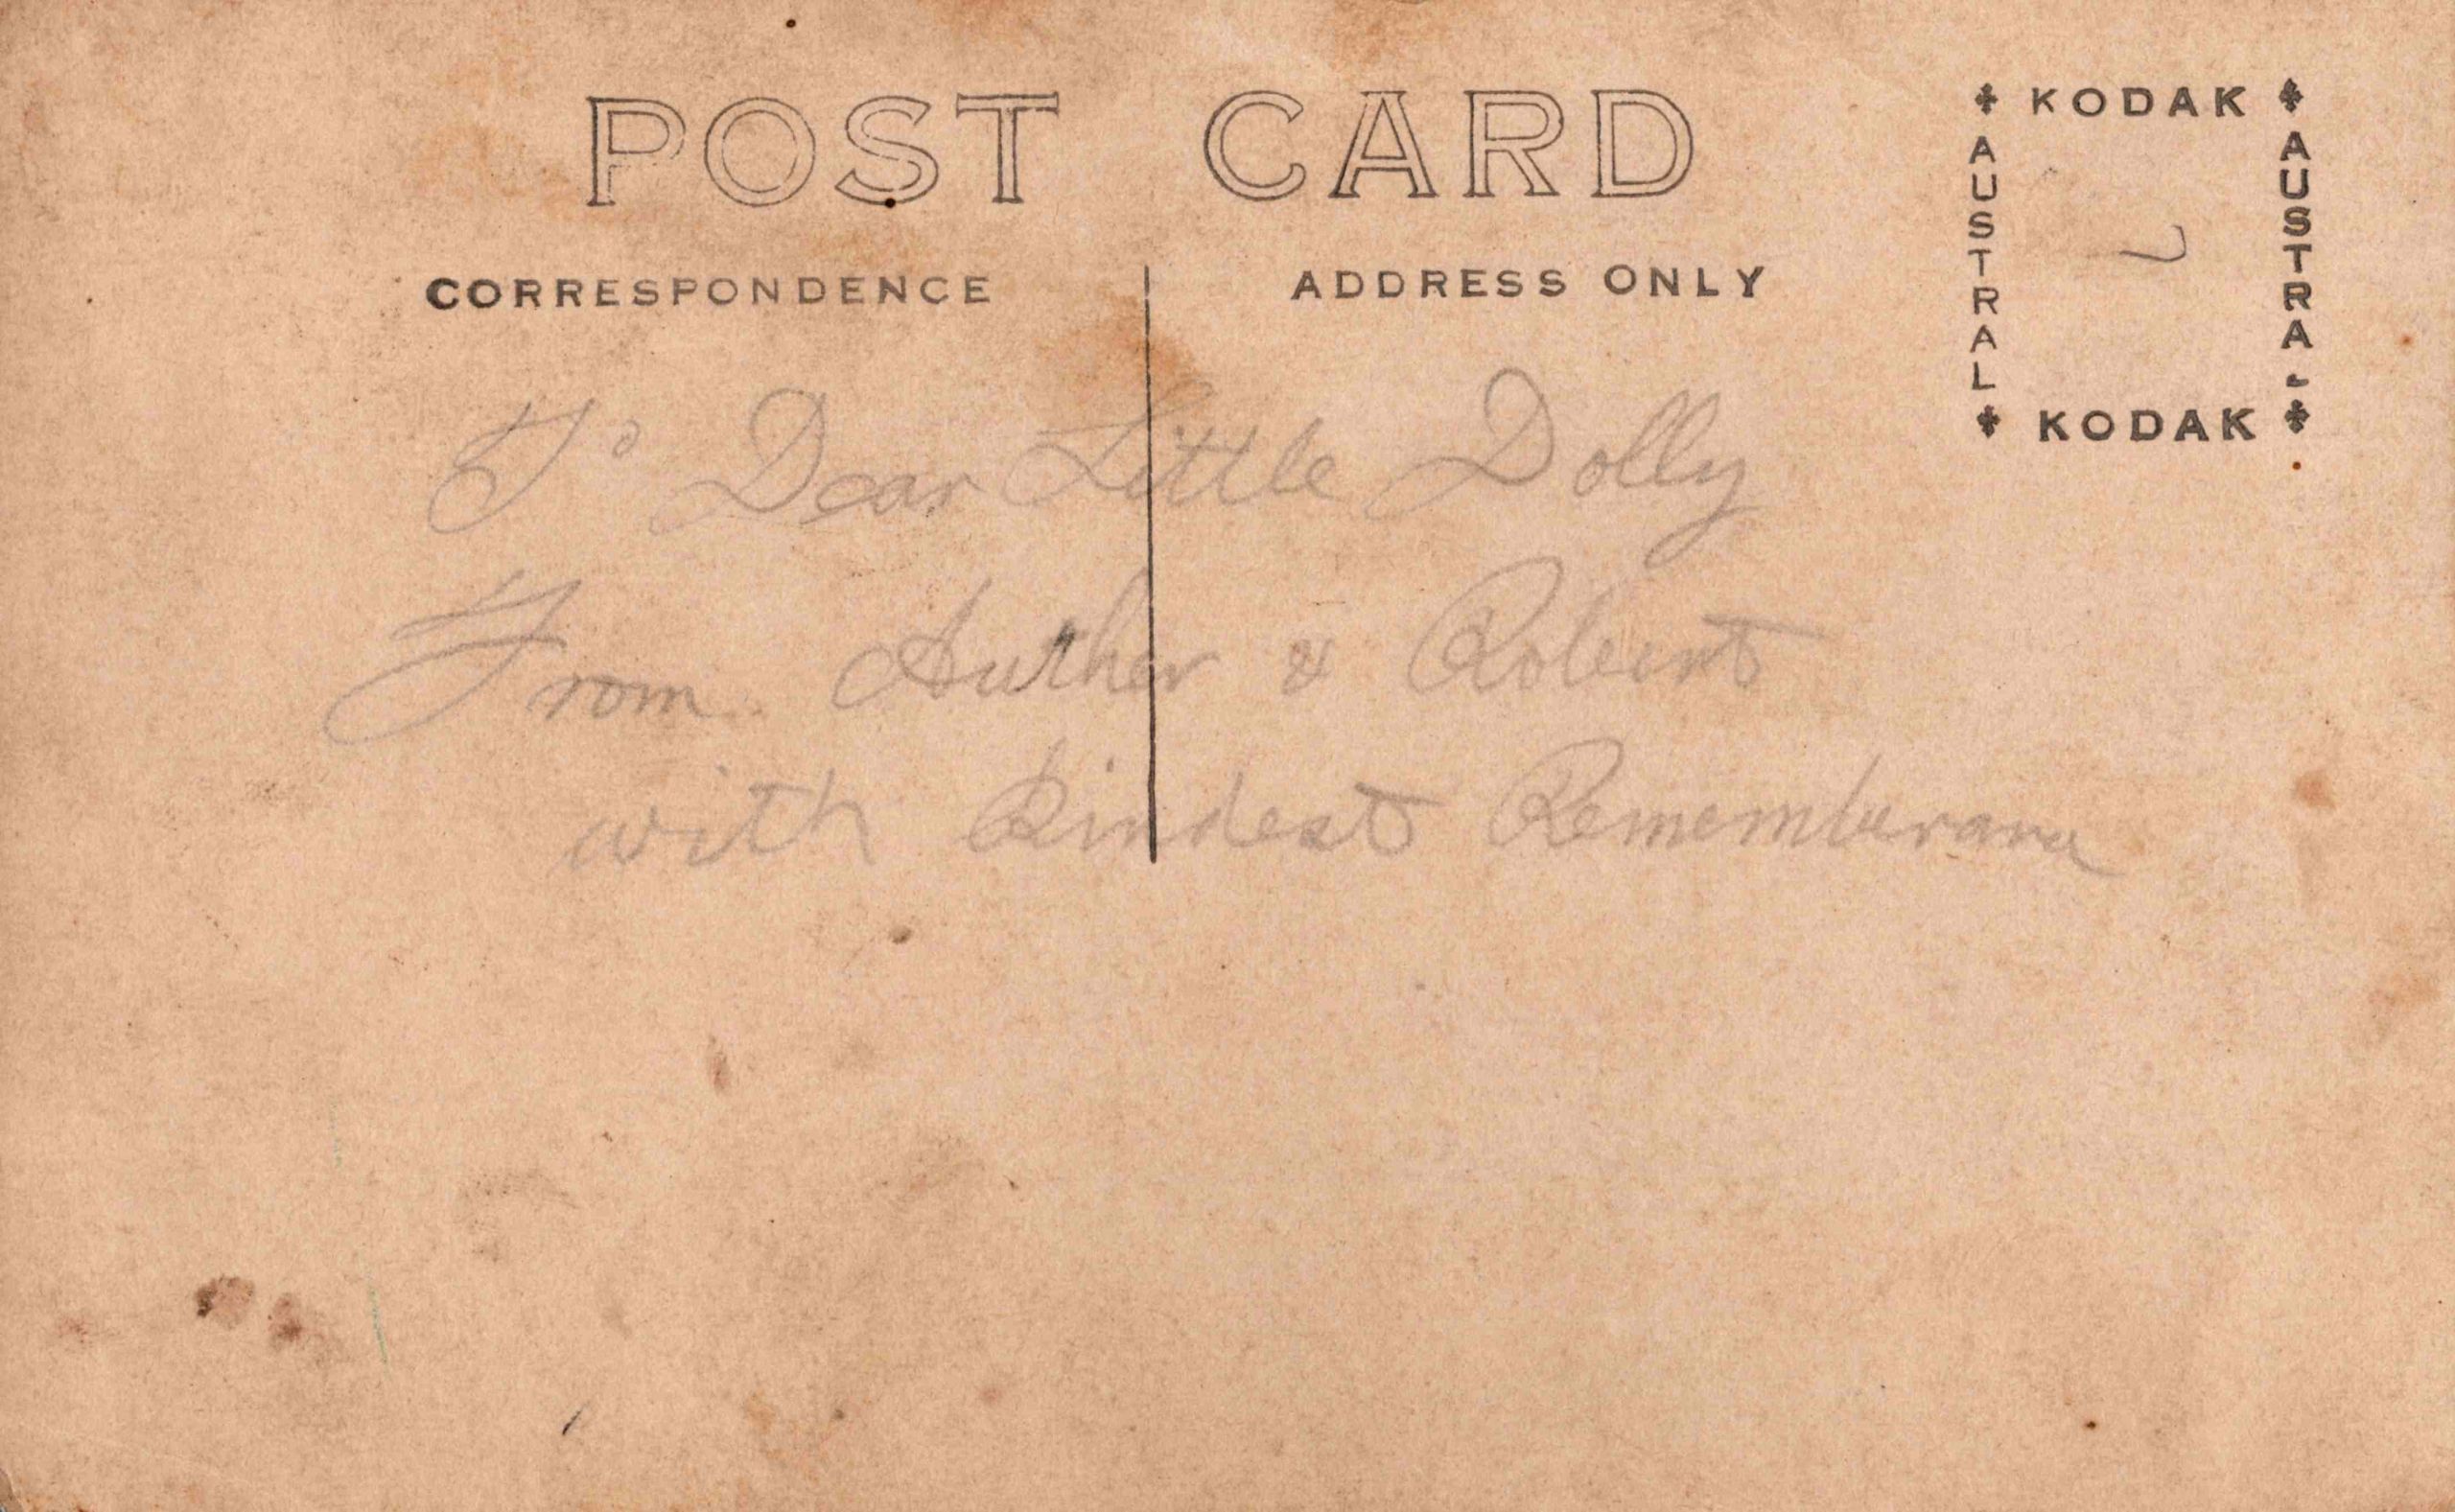 POST CARD
CORRESPONDENCE
ADDRESS ONLY
KODAK
AUSTRAL
AUSTRAL
KODAK
To Dear Little Dolly
From Auther & Robert
with Kindest